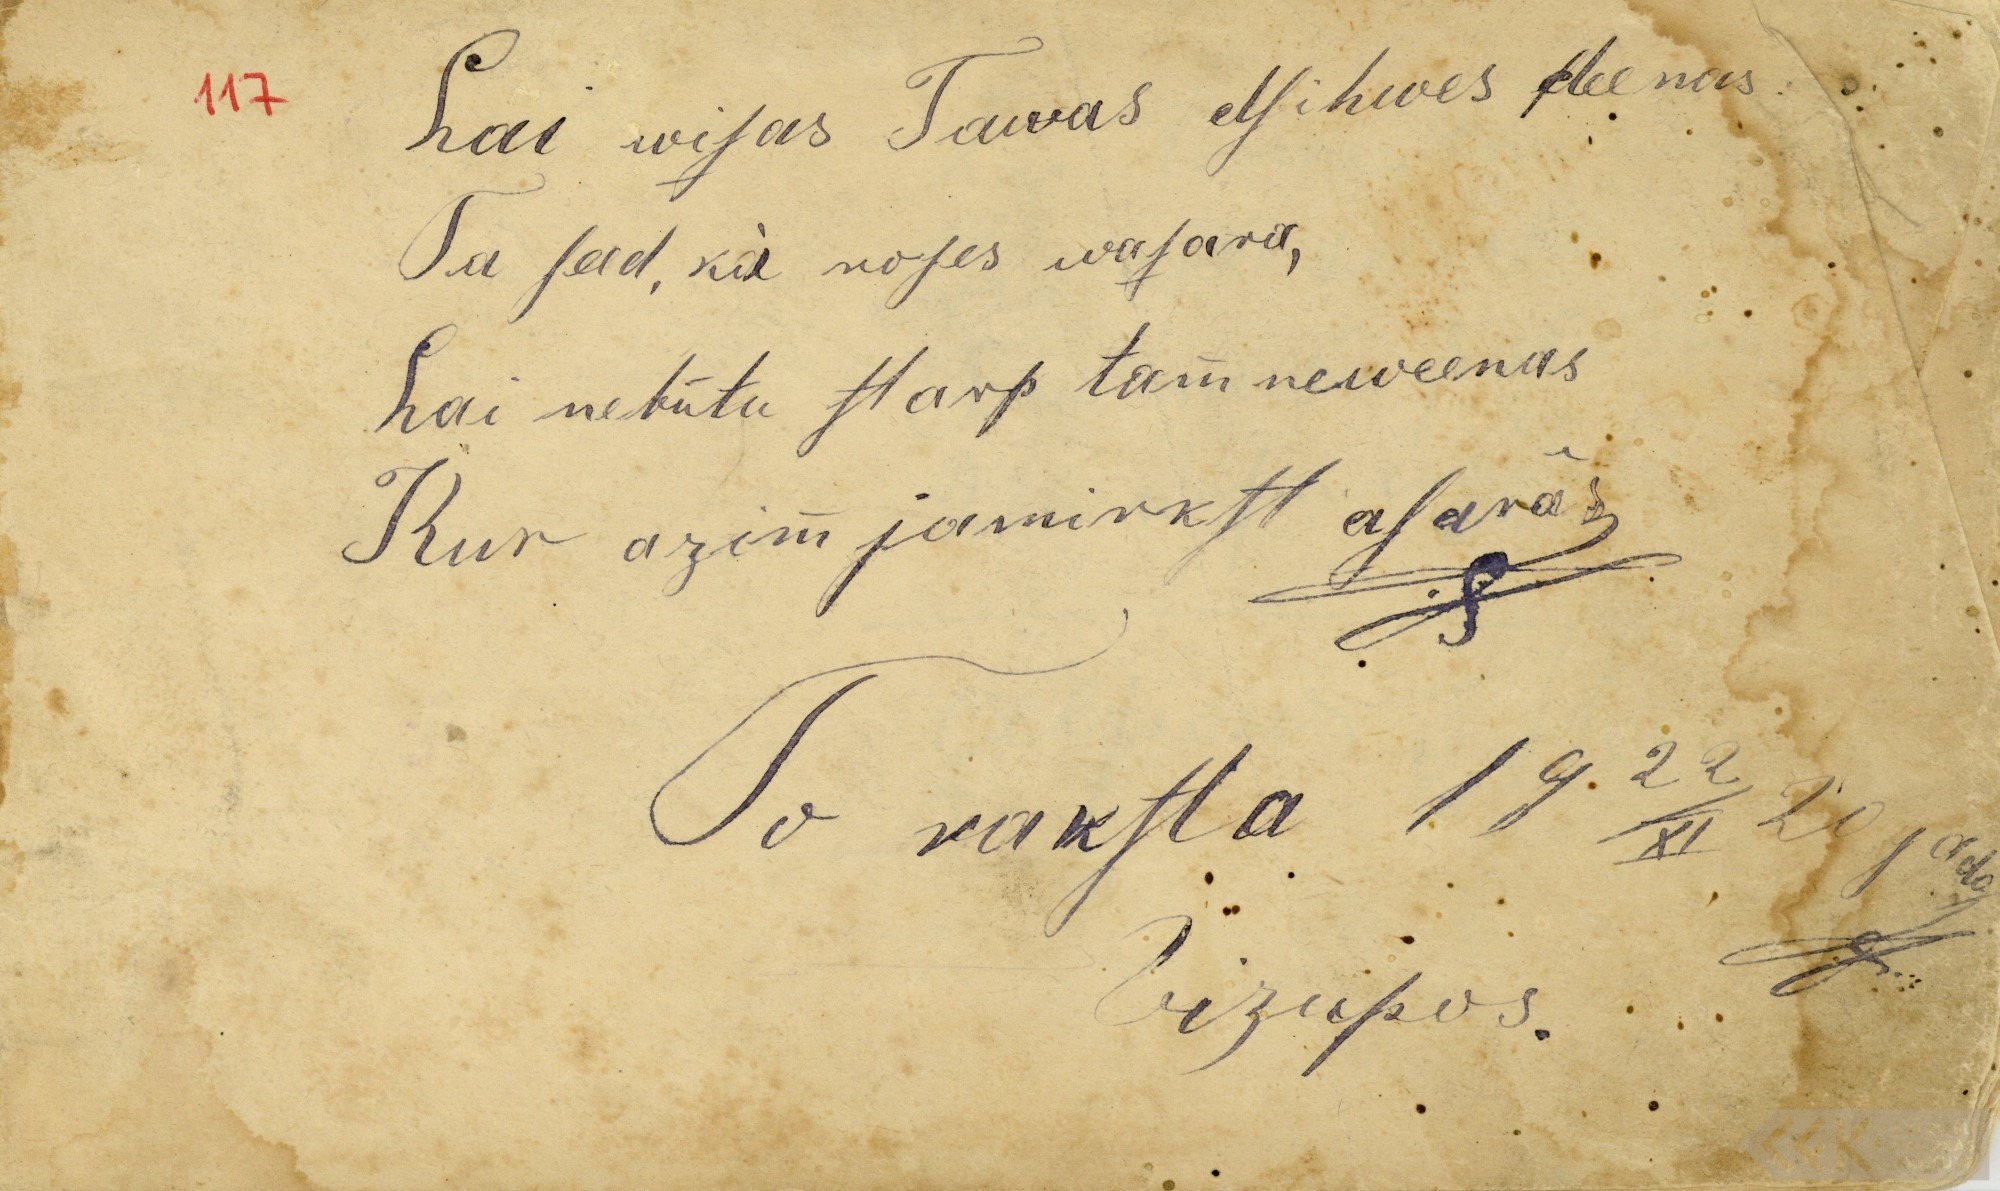 117
Lai wiſas Tawas dſihwes deenas
Ta ſed, kà roſes waſarā,
Lai nebūtu ſtarp tam̄ neweenas
Kur azim̄ jamirkſt aſarās
To rakſta 19 22/XI 20 gada
Vizupos.